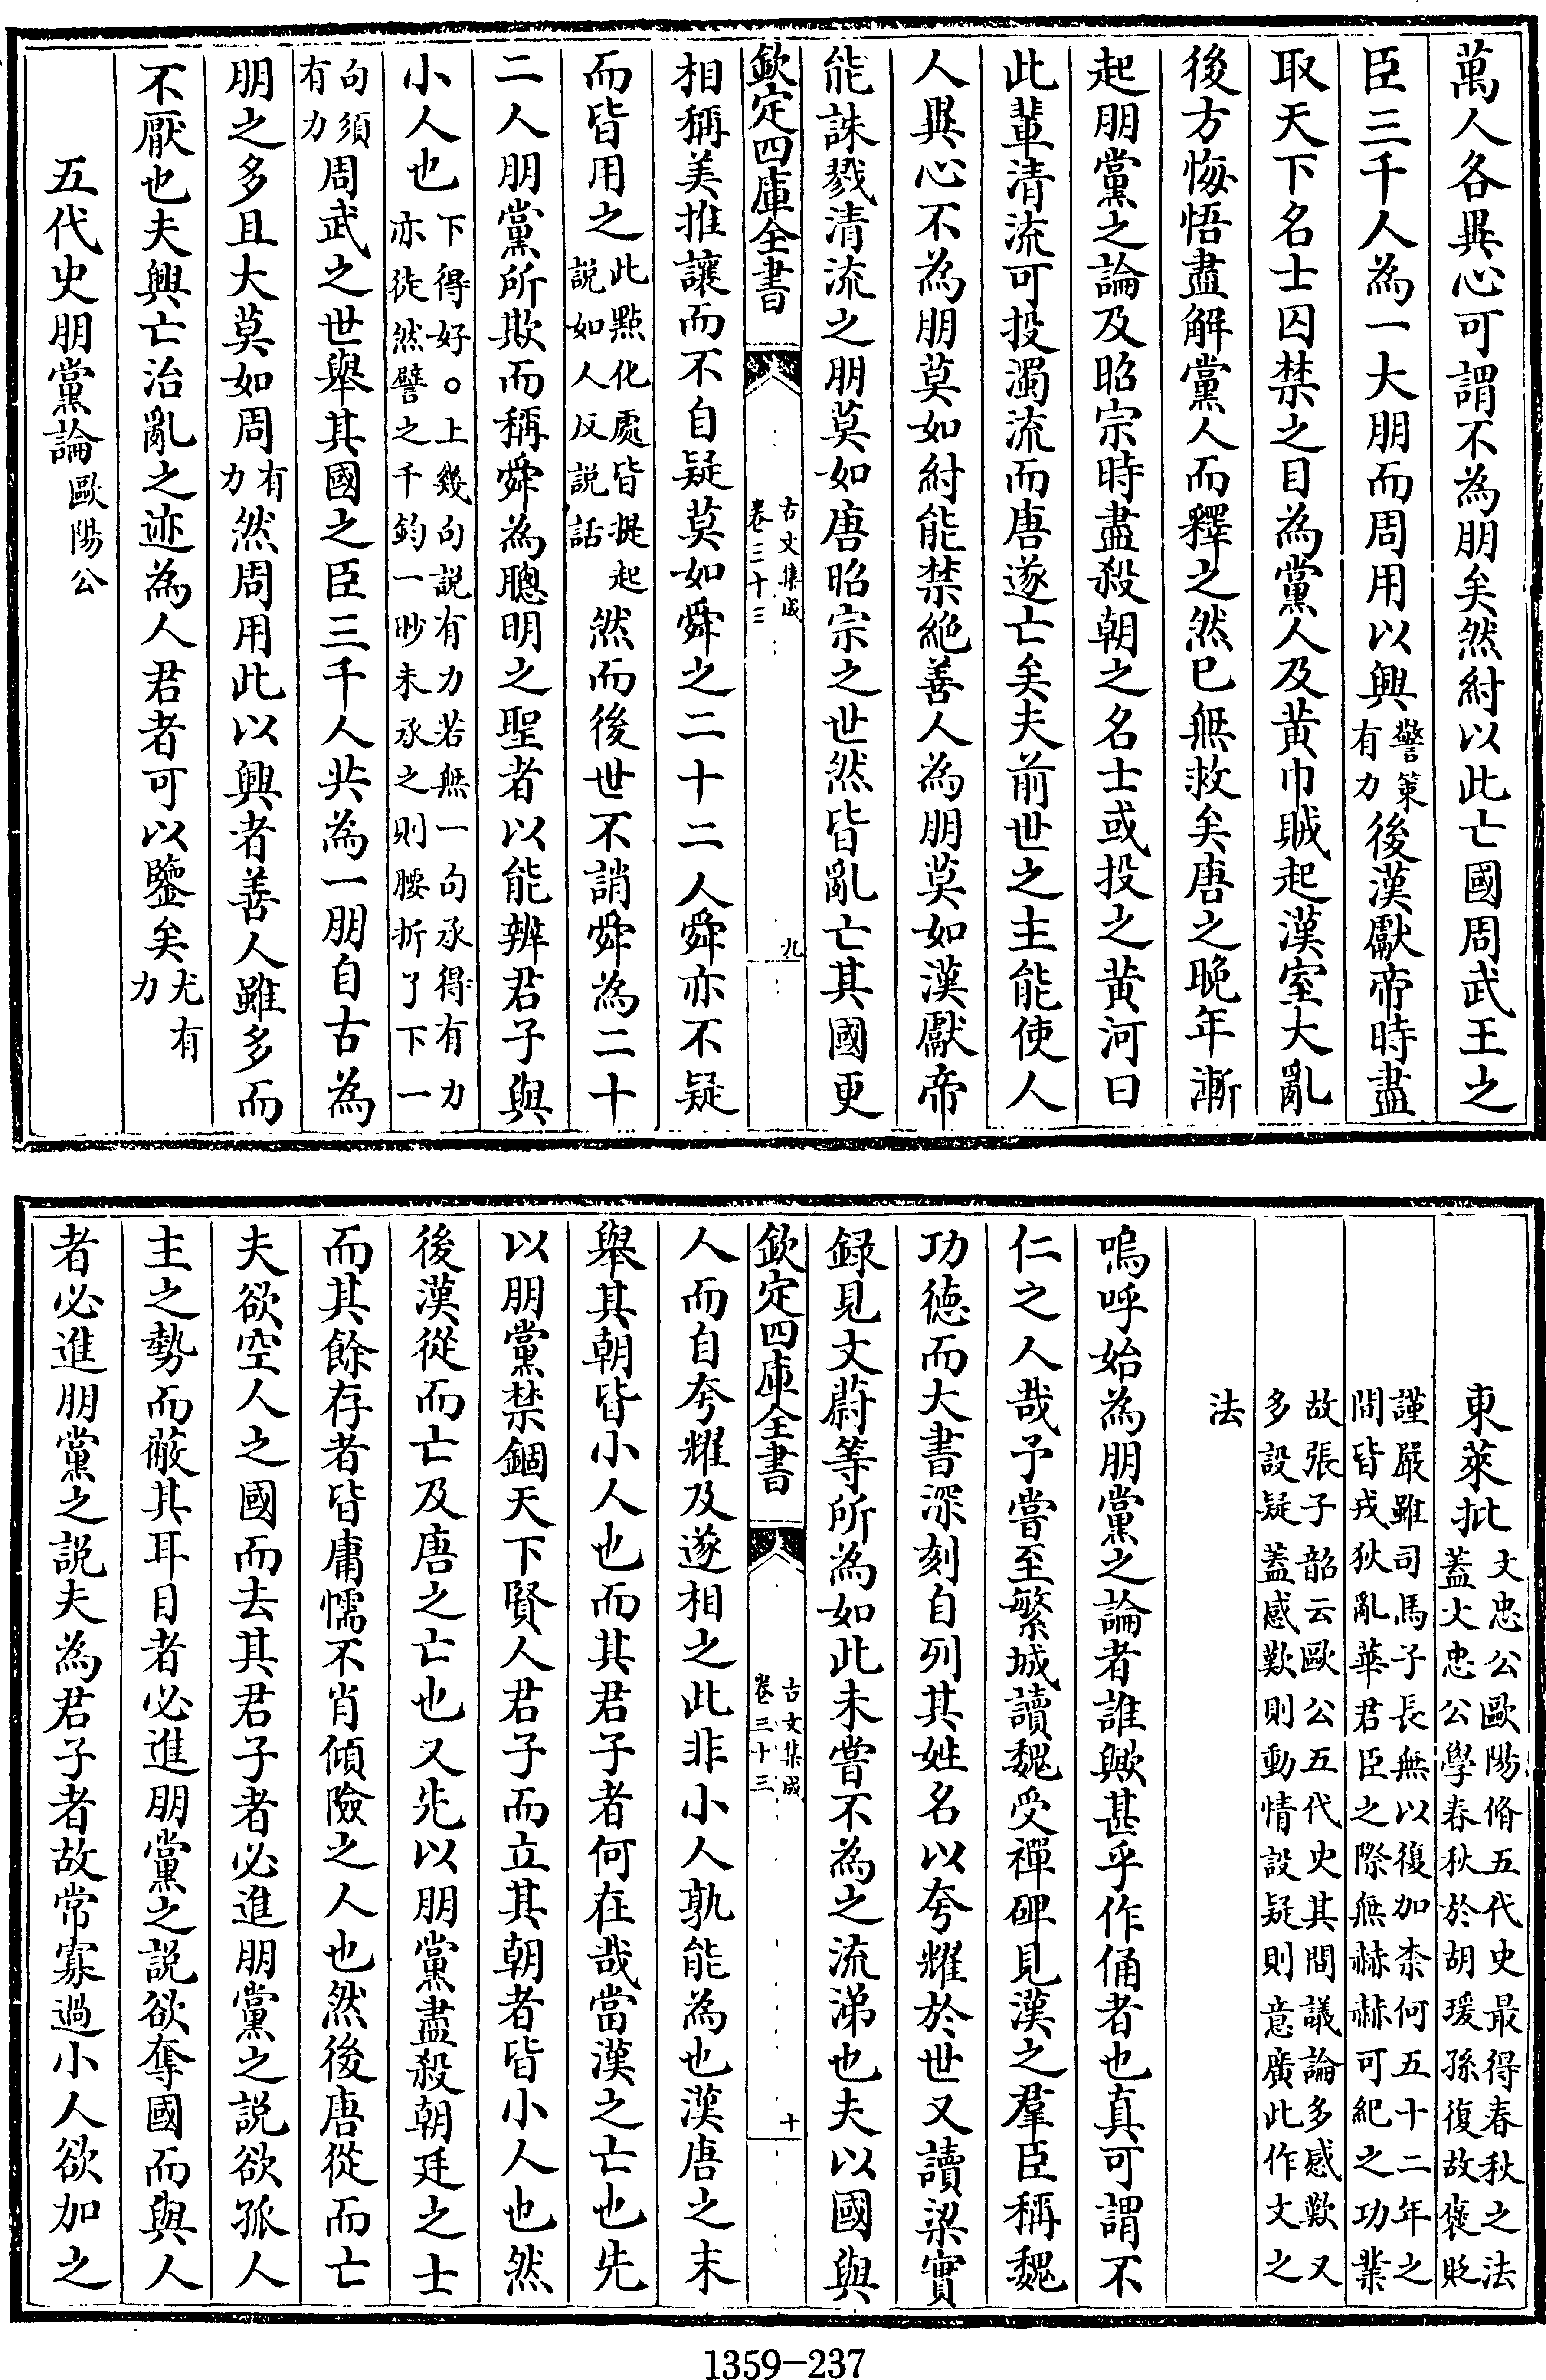 萬人各異心可謂不為朋矣然紂以此亡國周武王之
臣三千人為一大朋而周用以興警策有力後漢獻帝時盡
取天下名士囚禁之目為黨人及黄巾賊起漢室大亂
後方悔悟盡解黨人而釋之然已無救矣唐之晚年漸
起朋黨之論及昭宗時盡殺朝之名士或投之黄河曰
此輩清流可投濁流而唐遂亡矣夫前世之主能使人
人異心不為朋莫如紂能禁絶善人為朋莫如漢獻帝
能誅戮清流之朋莫如唐昭宗之世然皆亂亡其國更
欽定四庫全書 古文集成卷三十三 九
相稱美推讓而不自疑莫如舜之二十二人舜亦不疑
而皆用之此㸃化處皆提起説如人反説話然而後世不誚舜為二十
二人朋黨所欺而稱舜為聰明之聖者以能辨君子與
小人也下得好○上幾句説有力若無一句承得有力亦徒然譬之千鈞一眇未承之則腰折了下一
句須有力周武之世舉其國之臣三千人共為一朋自古為
朋之多且大莫如周有力然周用此以興者善人雖多而
不厭也夫興亡治亂之迹為人君者可以鑒矣尤有力
五代史朋黨論歐陽公
東萊批文忠公歐陽脩五代史最得春秋之法蓋文忠公學春秋於胡瑗孫復故褒貶
謹嚴雖司馬子長無以復加柰何五十二年之間皆戎狄亂華君臣之際無赫赫可紀之功業
故張子韶云歐公五代史其間議論多感歎又多設疑蓋感歎則動情設疑則意廣此作文之
法
嗚呼始為朋黨之論者誰歟甚乎作俑者也真可謂不
仁之人哉予嘗至繁城讀魏受禪碑見漢之羣臣稱魏
功徳而大書深刻自列其姓名以夸耀於世又讀梁實
録見文蔚等所為如此未嘗不為之流涕也夫以國與
欽定四庫全書 古文集成卷三十三 十
人而自夸耀及遂相之此非小人孰能為也漢唐之末
舉其朝皆小人也而其君子者何在哉當漢之亡也先
以朋黨禁錮天下賢人君子而立其朝者皆小人也然
後漢從而亡及唐之亡也又先以朋黨盡殺朝廷之士
而其餘存者皆庸懦不肖傾險之人也然後唐從而亡
夫欲空人之國而去其君子者必進朋黨之説欲孤人
主之勢而蔽其耳目者必進朋黨之説欲奪國而與人
者必進朋黨之説夫為君子者故常寡過小人欲加之
1359-237